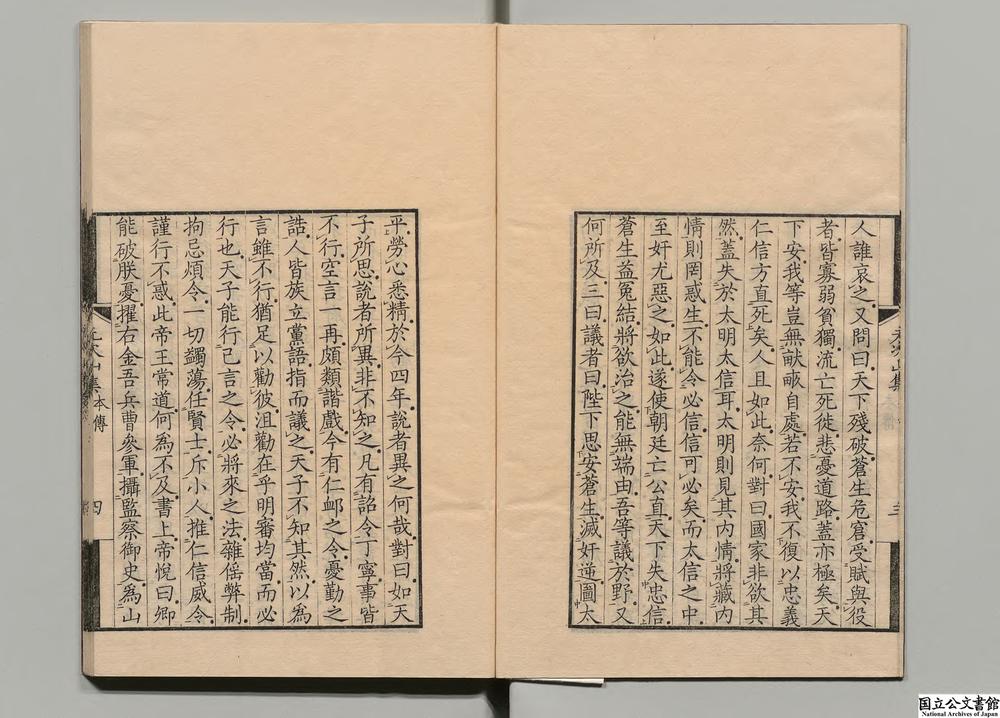 人誰哀之又問曰天下殘破蒼生危窘受賦與役
者皆寡弱貧獨流亡死徙悲憂道路蓋亦極矣天
下安我等豈無畎畝自處若不安我不復以忠義
仁信方直死矣人且如此奈何對曰國家非欲其
然蓋失於太明太信耳太明則見其內情將藏內
情則罔惑生不能令必信信可必矣而太信之中
至奸尤惡之如此遂使朝廷亡公直天下失忠信
蒼生益冤結將欲治之能無端由吾等議於野又
何所及三曰議者曰陛下思安蒼生滅奸逆圖太
三
平勞心悉精於今四年說者異之何哉對曰如天
子所思說者所異非不知之凡有詔令丁寧事皆
不行空言一再頗類諧戲今有仁卹之令憂勤之
誥人皆族立黨語指而議之天子不知其然以為
言雖不行猶足以勸彼沮勸在乎明審均當而必
行也天子能行已言之令必將來之法雜徭弊制
拘忌煩令一切蠲蕩任賢士斥小人推仁信威令
謹行不惑此帝王常道何為不及書上帝悅曰卿
能破朕憂擢右金吾兵曹參軍攝監察御史為山
元次山集 本傳 四
国立公文書館
National Archives of Japan